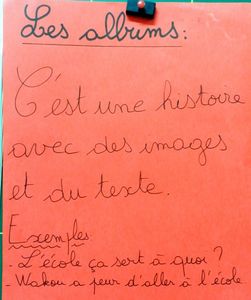 Les albums:
C'est une histoire
avec des images
et du texte.
Exemples
- L'école ça sert à quoi ?
- Wakou a peur d'aller à l'école